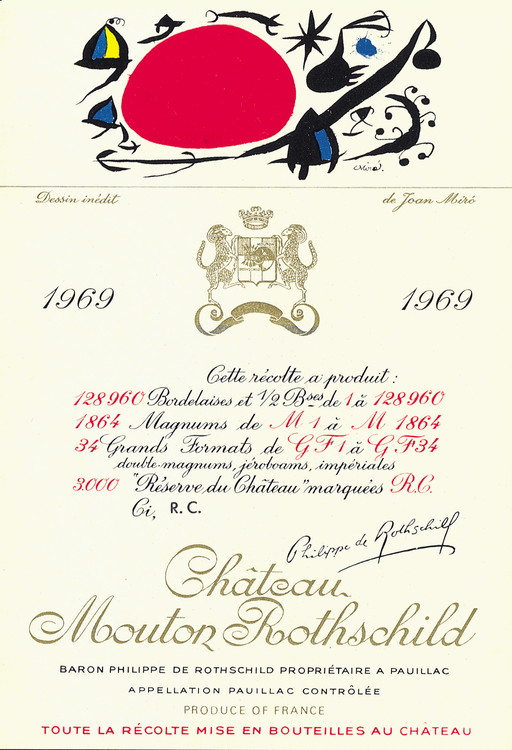 Miró.
Dessin inédit de Joan Miró
1969 1969
Cette récolte a produit :
128960 Bordelaises et ½ Bses de 1 à 128960
1864 Magnums de M 1 à M 1864
34 Grands Formats de G F 1 à G F 34
double-magnums, jéroboams, impériales
3.000 "Réserve du Château" marquées R.C.
Ci, R.C.
Philippe de Rothschild
Château
Mouton Rothschild
BARON PHILIPPE DE ROTHSCHILD PROPRIÉTAIRE A PAUILLAC
APPELLATION PAUILLAC CONTRÔLÉE
PRODUCE OF FRANCE
TOUTE LA RÉCOLTE MISE EN BOUTEILLES AU CHÂTEAU